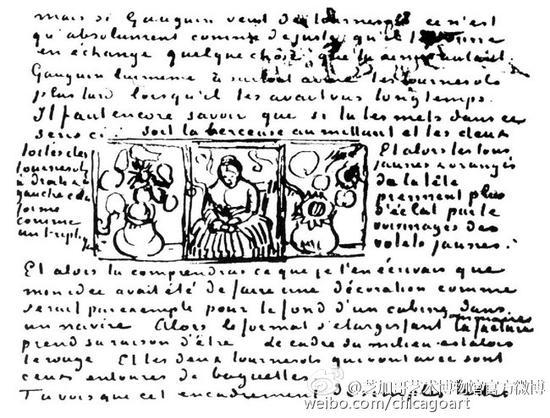 mais si Gauguin veut des tournesols ce n'est
qu'absolument comme de juste qu'il te donne
en échange quelque chose que tu aimes autant.
Gauguin lui même a surtout aimé les tournesols
plus tard lorsqu'il les avait vus longtemps.
Il faut encore savoir que si tu les mets dans ce
sens ci: soit la berceuse au milieu et les deux
toiles des
tournesols
à droite &
à gauche cela
forme
comme
un triptyque
Et alors les tons
jaunes & orangés
de la tête
prennent plus
d'éclat par les
voisinages des
volets jaunes.
Et alors tu comprendras ce que je t'en écrivais que
mon idée avait été de faire une décoration comme
serait par exemple pour le fond d'une cabine dans
un navire. Alors le format s'élargissant la facture sommaire
prend sa raison d'être. le cadre du milieu est alors
le rouge. Et les deux tournesols qui vont avec sont
ceux entourés de baguettes.
Tu vois que cet encadrement de simples lattes
@芝加哥艺术博物馆官方微博
weibo.com/chicagoart